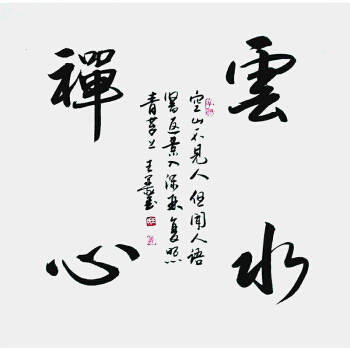 雲水
空山不見人但聞人語
響返景入深林复照
青苔上 王
禪心